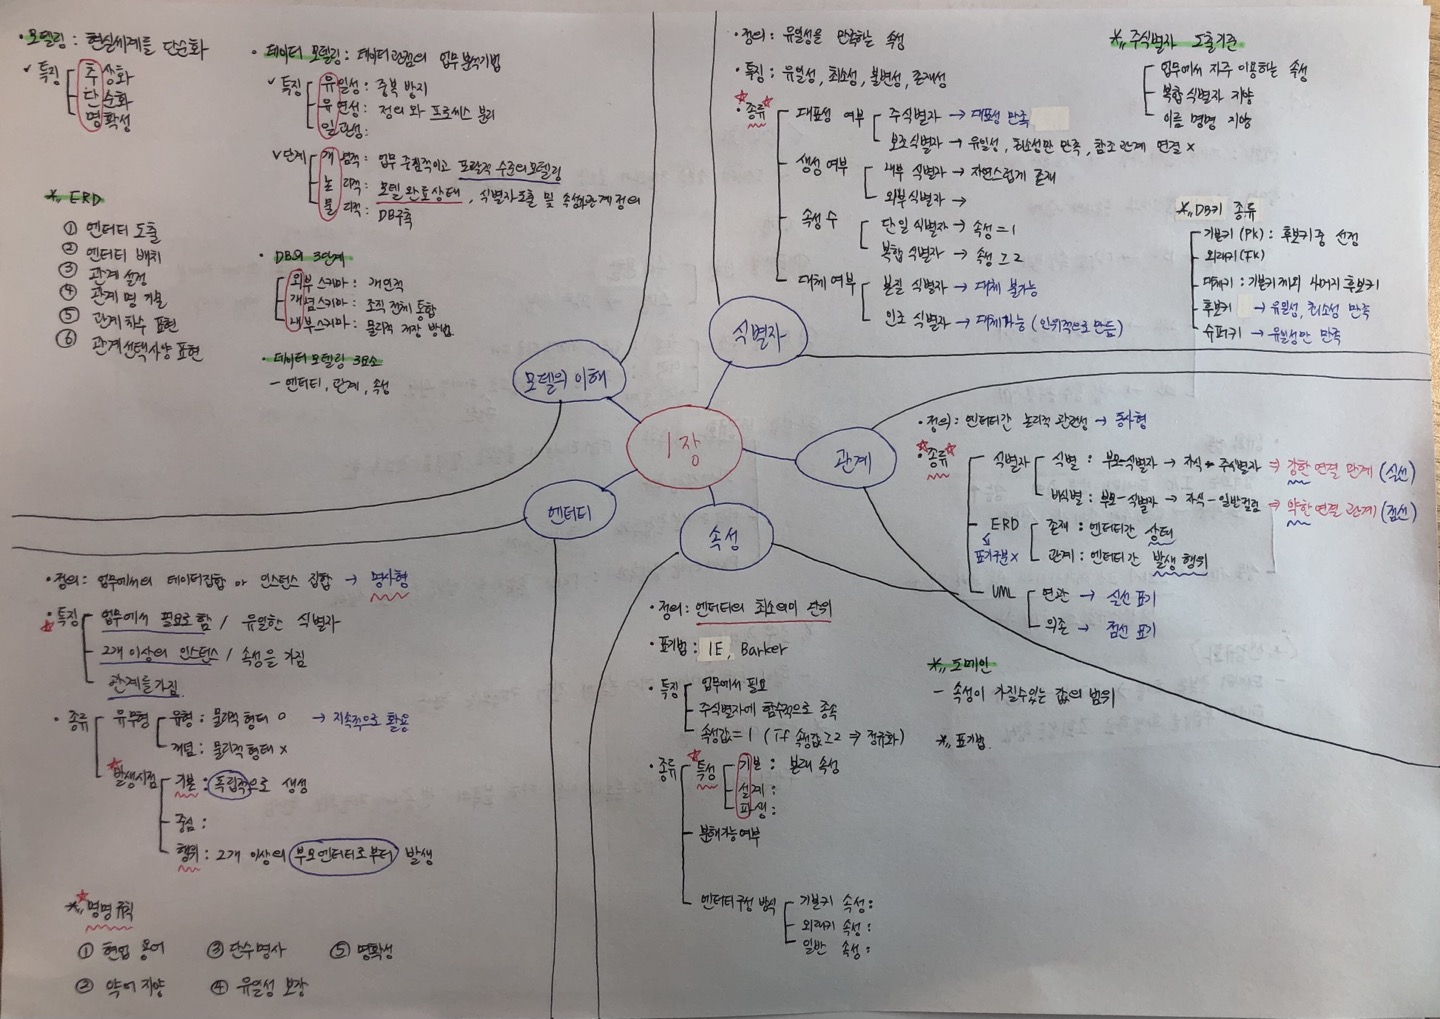 1장
모델의 이해
• 모델링 : 현실세계를 단순화
✓ 특징
추상화
단순화
명확성
• 데이터 모델링 : 데이터관점의 업무 분석기법
✓ 특징
유일성 : 중복 방지
유연성 : 정의와 프로세스 분리
일관성 :
✓ 단계
개념적 : 업무 중심적이고 포괄적 수준의 모델링
논리적 : 모델 완료상태, 식별자도출 및 속성&관계 정의
물리적 : DB구축
※ ERD
① 엔터티 도출
② 엔터티 배치
③ 관계 설정
④ 관계 명 기술
⑤ 관계 차수 표현
⑥ 관계선택사양 표현
• DB의 3단계
외부스키마 : 개인적
개념스키마 : 조직 전체 통합
내부스키마 : 물리적 저장 방법
• 데이터 모델링 3요소
- 엔터티, 관계, 속성
식별자
• 정의 : 유일성을 만족하는 속성
• 특징 : 유일성, 최소성, 불변성, 존재성
• 종류
대표성 여부
주식별자 → 대표성 만족
보조식별자 → 유일성, 최소성만 만족, 참조 관계 연결 x
생성 여부
내부 식별자 → 자연스럽게 존재
외부 식별자 →
속성 수
단일 식별자 → 속성 = 1
복합 식별자 → 속성 ≥ 2
대체 여부
본질 식별자 → 대체 불가능
인조 식별자 → 대체가능 (인위적으로 만듦)
※ 주식별자 도출기준
업무에서 자주 이용하는 속성
복합 식별자 지양
이름 명명 지양
※ DB키 종류
기본키 (PK) : 후보키 중 선정
외래키 (FK)
대체키 : 기본키 제외 나머지 후보키
후보키 → 유일성, 최소성 만족
슈퍼키 → 유일성만 만족
관계
• 정의 : 엔터티간 논리적 관련성 → 동사형
• 종류
식별자
식별 : 부모-식별자 → 자식-주식별자 ⇒ 강한 연결 관계 (실선)
비식별 : 부모-식별자 → 자식-일반컬럼 ⇒ 약한 연결 관계 (점선)
ERD
표기구분 x
존재 : 엔터티간 상태
관계 : 엔터티간 발생 행위
UML
연관 → 실선 표기
의존 → 점선 표기
엔터티
• 정의 : 업무에서의 데이터집합 or 인스턴스 집합 → 명사형
• 특징
업무에서 필요로 함 / 유일한 식별자
2개 이상의 인스턴스 / 속성을 가짐
관계를 가짐
• 종류
유무형
유형 : 물리적 형태 o → 지속적으로 활용
개념 : 물리적 형태 x
발생시점
기본 : 독립적으로 생성
중심 :
행위 : 2개 이상의 부모엔터티로부터 발생
※ 명명 규칙
① 현업 용어 ③ 단수명사 ⑤ 명확성
② 약어 지양 ④ 유일성 보장
속성
• 정의 : 엔터티의 최소의미 단위
• 표기법 : IE, Barker
• 특징
업무에서 필요
주식별자에 함수적으로 종속
속성값 = 1 (If 속성값 ≥ 2 ⇒ 정규화)
• 종류
특성
기본 : 본래 속성
설계 :
파생 :
분해가능여부
엔터티구성 방식
기본키 속성 :
외래키 속성 :
일반 속성 :
※ 도메인
- 속성이 가질수있는 값의 범위
※ 표기법